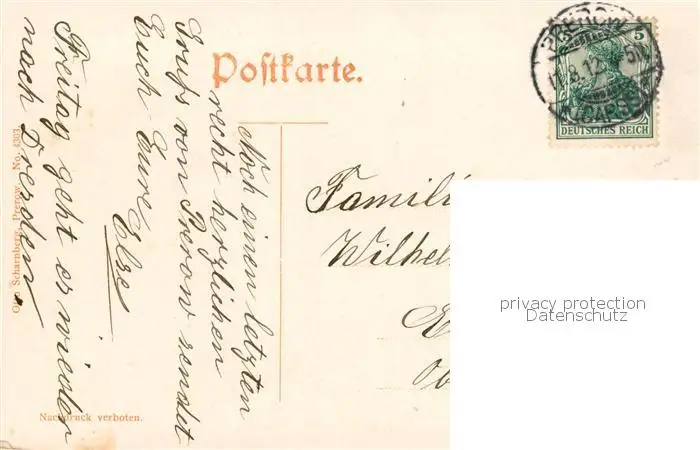 Postkarte.
Noch einen letzten
recht herzlichen
Gruß von Prerow sendet
Euch Eure
Else
Freitag geht es wieder
nach Dresden.
Otto Scharnberg, Prerow. No. 4303
Nachdruck verboten.
PREROW
11.8.12
5
DEUTSCHES REICH
Famili
Wilhel
privacy protection
Datenschutz